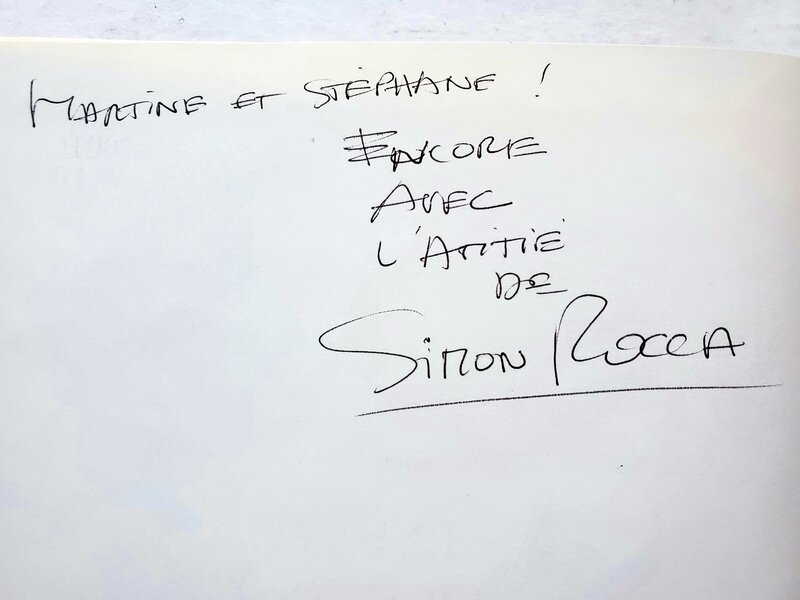 MARTINE ET STÉPHANE !
ENCORE
AVEC
L'AMITIÉ
DE
SIMON ROCCA